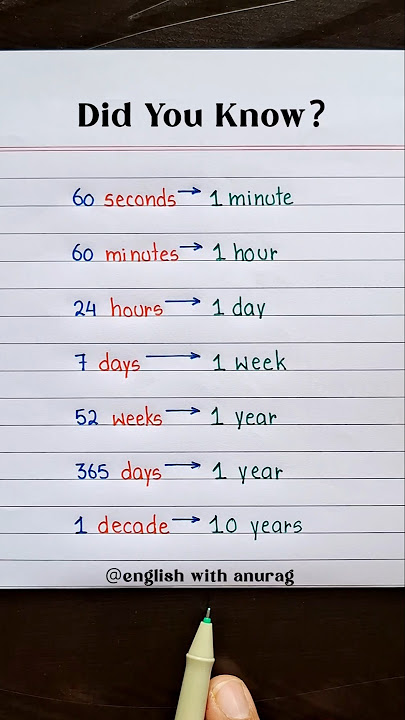 Did You Know?
60 seconds → 1 minute
60 minutes → 1 hour
24 hours → 1 day
7 days → 1 week
52 weeks → 1 year
365 days → 1 year
1 decade → 10 years
@english with anurag